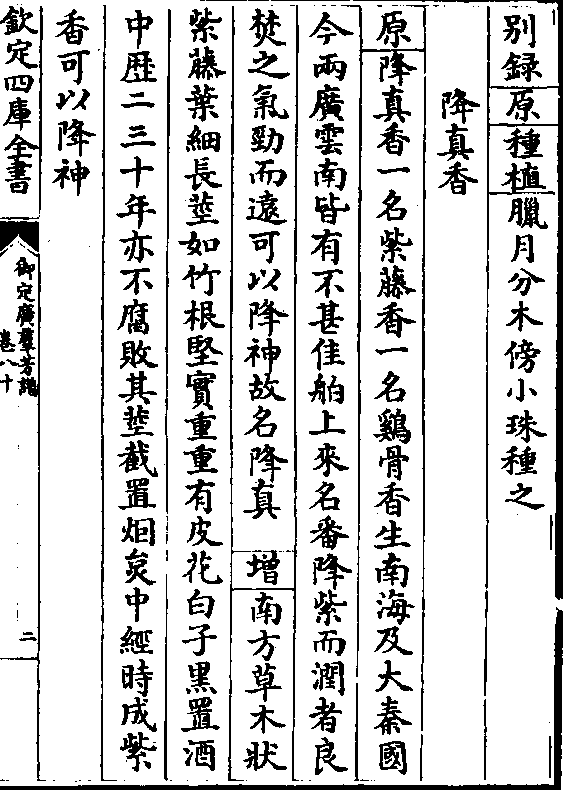 别録原種植臘月分木傍小珠種之
降真香
原降真香一名紫藤香一名鷄骨香生南海及大秦國
今兩廣雲南皆有不甚佳舶上來名番降紫而潤者良
焚之氣勁而遠可以降神故名降真 增南方草木狀
紫藤葉細長莖如竹根堅實重重有皮花白子黑置酒
中歴二三十年亦不腐敗其莖截置烟炱中經時成紫
香可以降神
欽定四庫全書
御定廣羣芳譜
卷八十
二